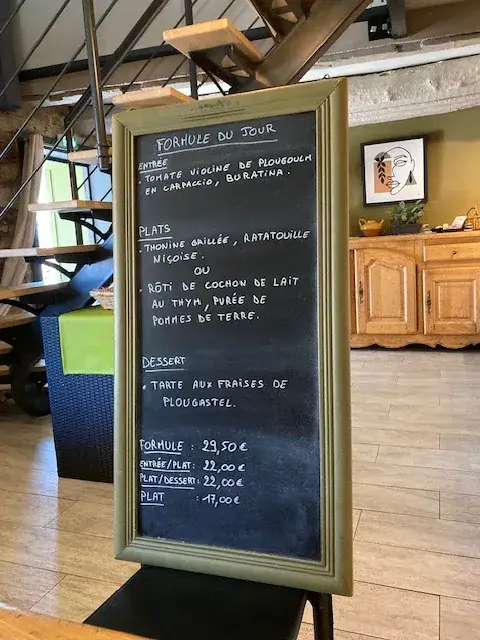 FORMULE DU JOUR
ENTRÉE
. TOMATE VIOLINE DE PLOUGOULM
EN CARPACCIO, BURATINA.
PLATS
. THONINE GRILLÉE, RATATOUILLE
NIÇOISE.
OU
. RÔTI DE COCHON DE LAIT
AU THYM, PURÉE DE
POMMES DE TERRE.
DESSERT
. TARTE AUX FRAISES DE
PLOUGASTEL.
FORMULE : 29,50 €
ENTRÉE/PLAT : 22,00 €
PLAT/DESSERT : 22,00 €
PLAT : 17,00 €